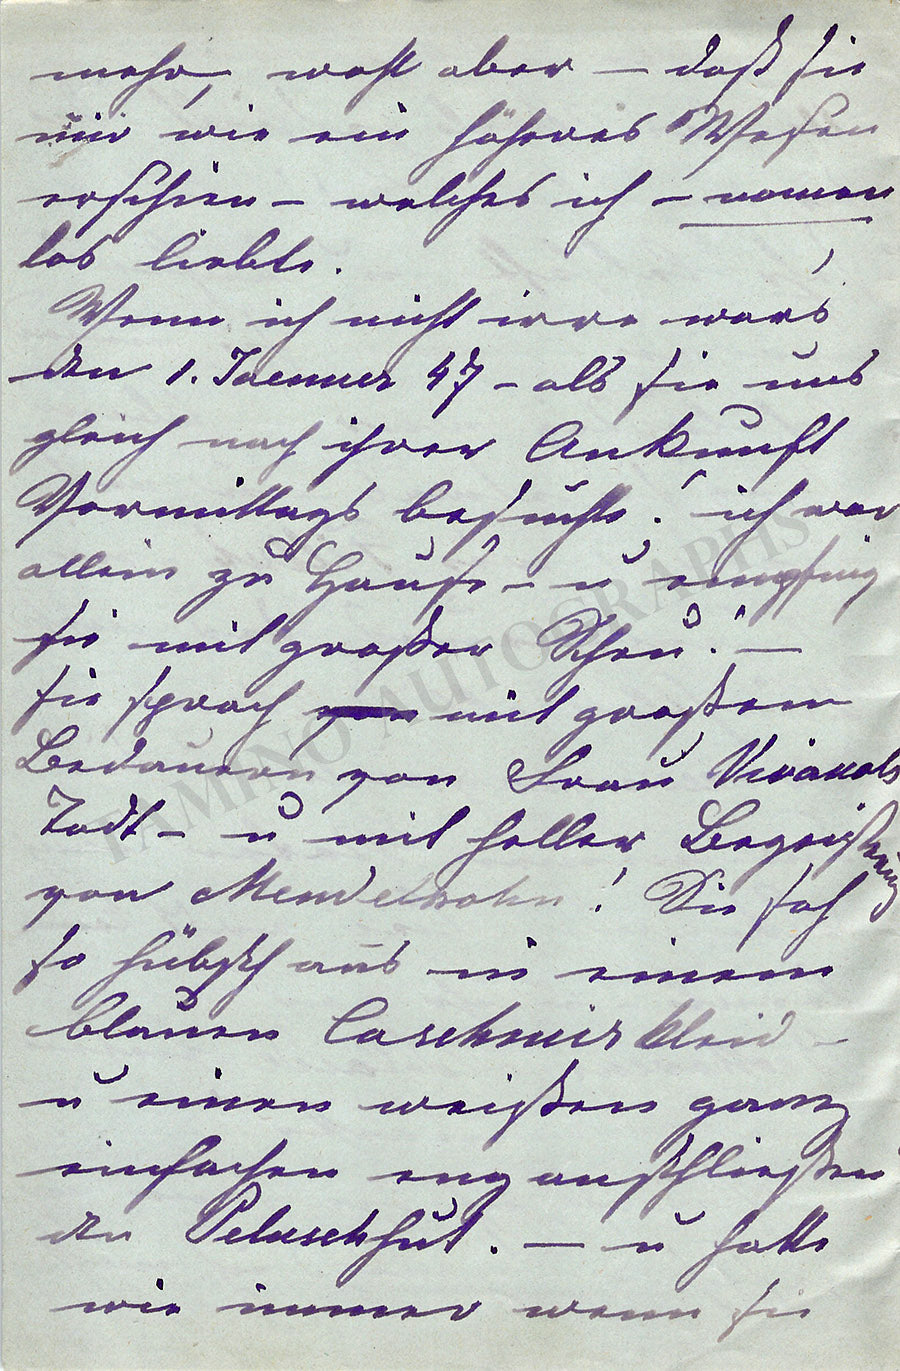 mehr, wohl aber – daß sie
mir wie ein höheres Wesen
erschien – welches ich – namen
los liebte.
Wenn ich nicht irre war's
den 1. Jaenner 47 – als sie uns
gleich nach ihrer Ankunft
Vormittags besuchte! ich war
allein zu Hause – u empfing
sie mit großer Scheu! –
sie sprach von mit großem
Bedauern von Frau
Todt – u mit heller Begeisterung
von Mendelsohn! Sie sah
so hübsch aus in einem
blauen Caschmir kleid –
u einen weißen ganz
einfachen eng anschließen
den Peluschhut. – u hatte
wie immer wenn sie
TAMINO AUTOGRAPHS